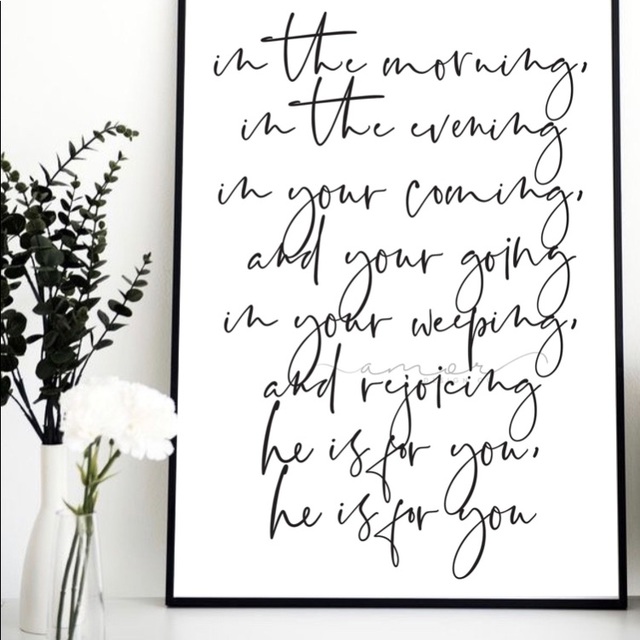 in the morning,
in the evening
in your coming,
and your going
in your weeping,
amor
and rejoicing
he is for you,
he is for you